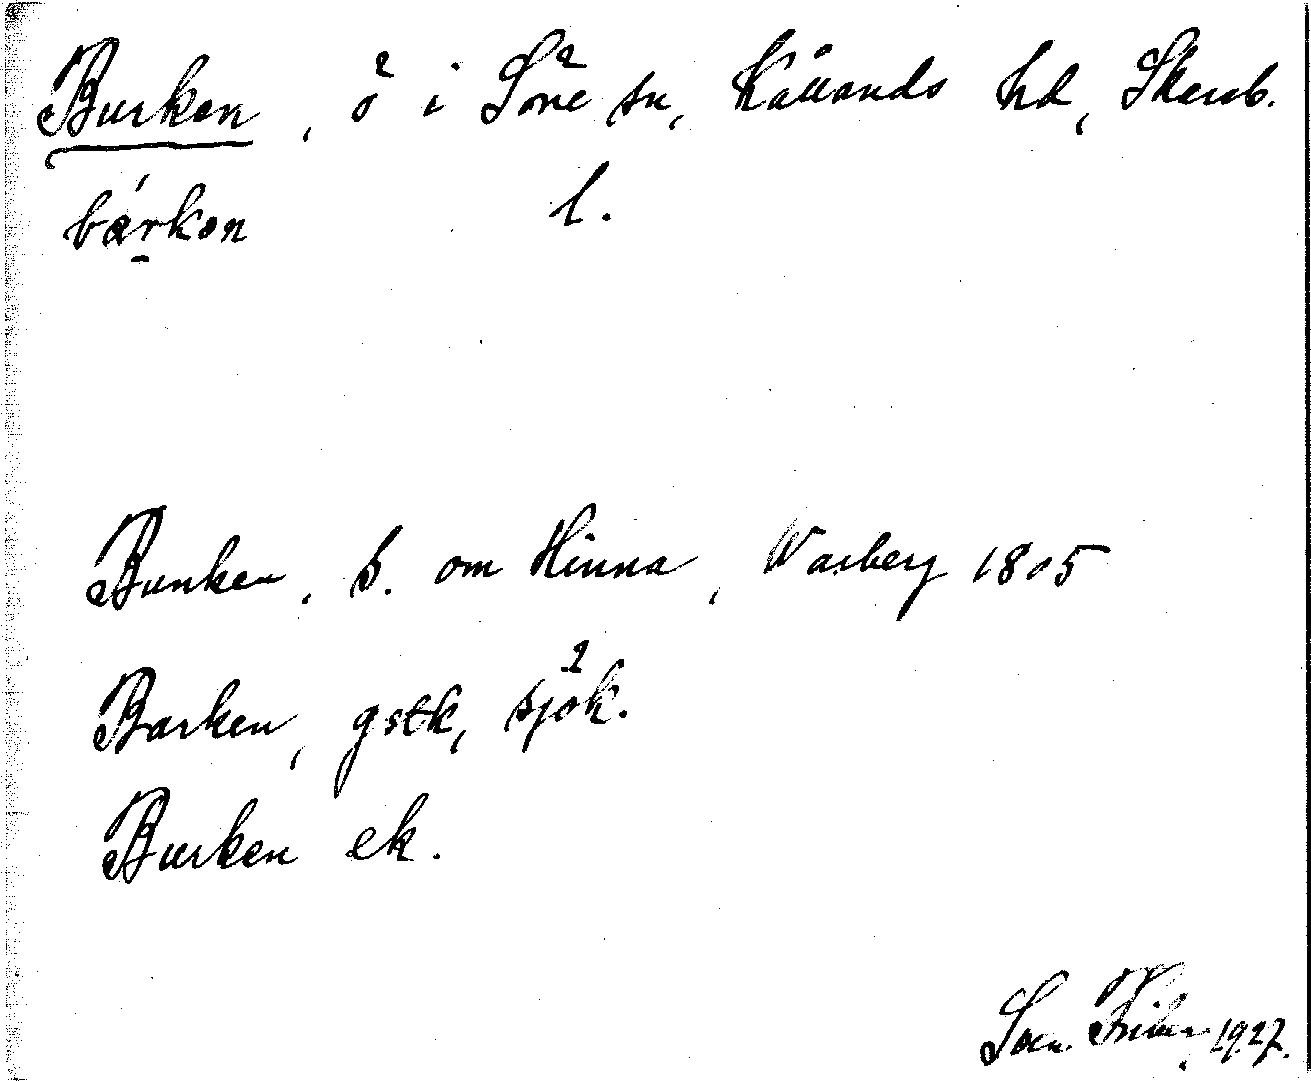 Burken, ö i Söne sn, Kållands hd, Skarab.
l.
Bunken, b. om Hinna, Warberg 1805
Barken, gstk, sjök.
Burken ek.
Sven 1927.